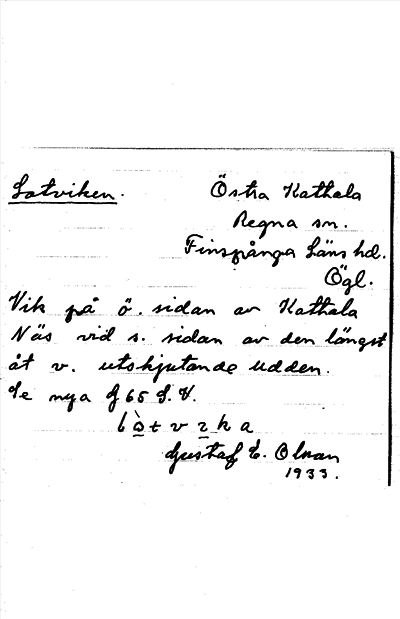 Lotviken.
Östra Kattala
Regna sn.
Finspånga Läns hd.
Ögl.
Vik på ö. sidan av Kattala
Näs vid s. sidan av den längst
åt v. utskjutande udden.
Se nya J 65 S.V.
Gustaf E. Olson
1933.